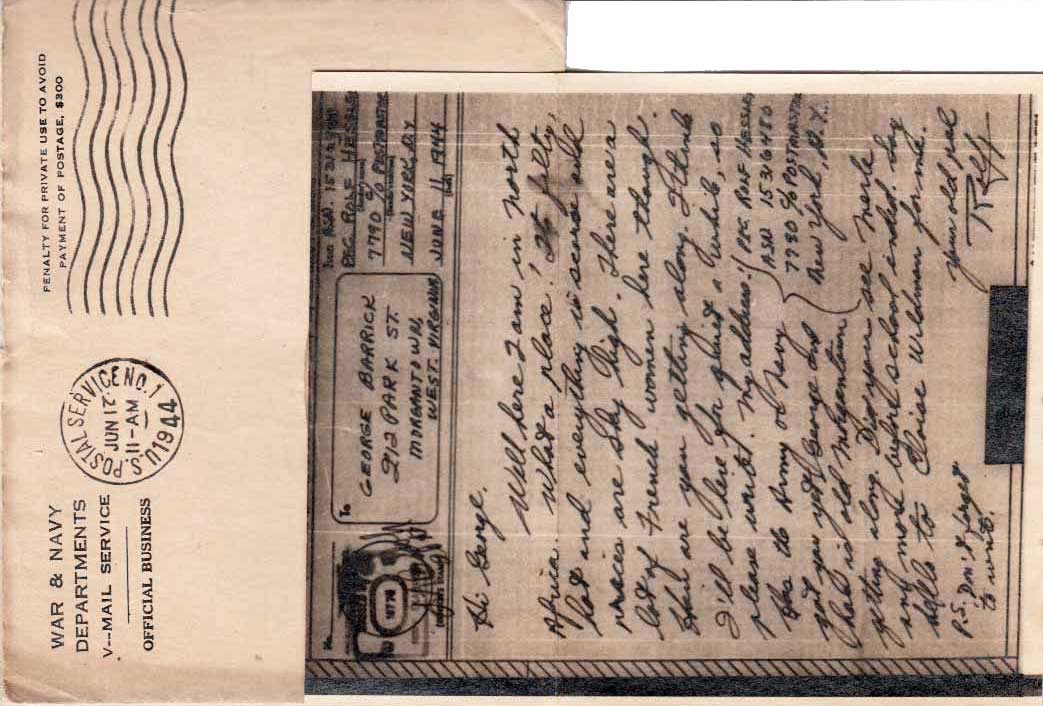 WAR & NAVY
DEPARTMENTS
V--MAIL SERVICE
OFFICIAL BUSINESS
U.S. POSTAL SERVICE NO. 1
JUN 12
11-AM
1944
PENALTY FOR PRIVATE USE TO AVOID
PAYMENT OF POSTAGE, $300
No.
To
GEORGE BARRICK
212 PARK ST.
MORGANTOWN,
WEST. VIRGINIA
From
PFC. ROLF HESSLER
7790 % POSTMASTER
NEW YORK, N.Y.
JUNE 11 1944
Hi George.
Well here I am in North
Africa. What a place!
hot and everything is scarce and
prices are sky high. There are a
lot of French women here though.
How are you getting along. I think
I'll be here for quiet a while, so
please write. My address: PFC. ROLF HESSLER
Has the Army or Navy ASN
got you yet George and 7790 % POSTMASTER
How is old Morgantown New York, N.Y.
getting along. Did you see Merle
any more before school ended. Say
hello to Eloise for me.
your old pal
Rolf
P.S. Don't forget
to write.